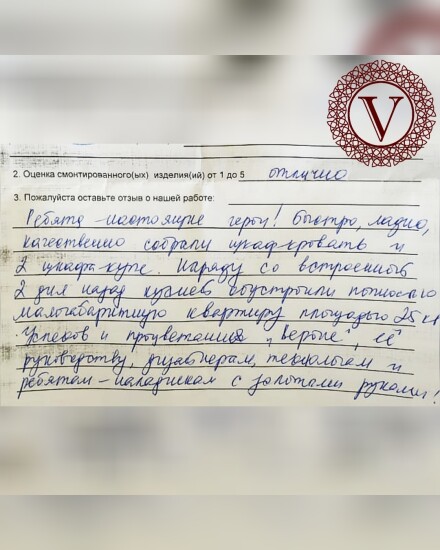 V
2. Оценка смонтированного(ых) изделия(ий) от 1 до 5 отлично
3. Пожалуйста оставьте отзыв о нашей работе:
Ребята - настоящие герои! Быстро, ладно,
качественно собрали шкаф-кровать и
2 шкафа-купе. Наряду со встроенной
2 дня назад кухней обустроили полностью
малогабаритную квартиру площадью 25 кв
Успехов и процветания "Веропе", её
руководству, дизайнерам, технологам и
ребятам - наладчикам с золотыми руками!